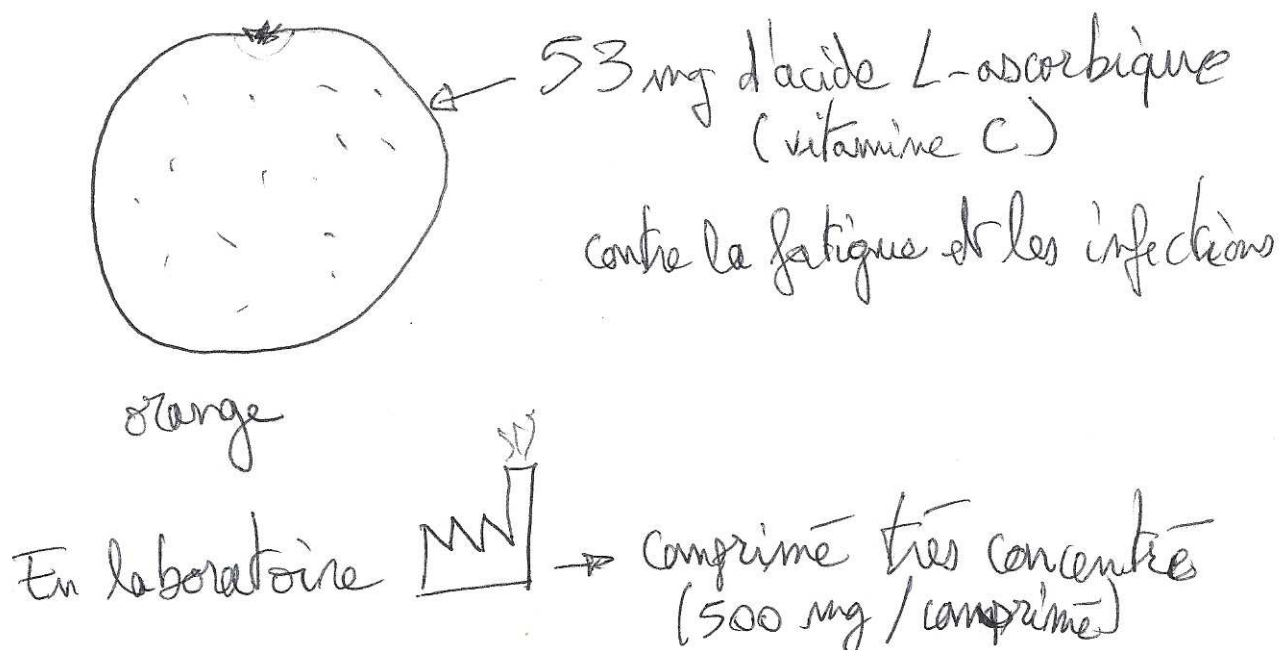 53 mg d'acide L-ascorbique
(vitamine C)
contre la fatigue et les infections
orange
En laboratoire → comprimé très concentré
(500 mg / comprimé)